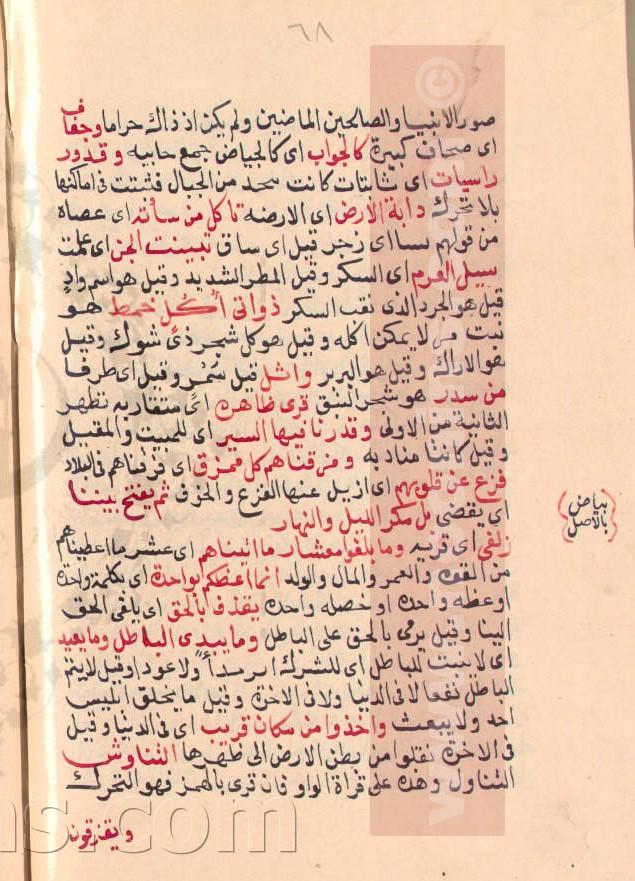 ٦٨
صور الانبيا والصالحين الماضين ولم يكن اذ ذاك حراما وجفان
اى صحاف كبيرة كالجواب اى كالجياض جمع جابيه وقدور
راسيات اى ثابتات كانت سحد من الجبال فثنتت فى اماكنها
بلا تحرك دابة الارض اى الارضه تاكل من سأته اى عصاه
من قولهم اى زجر قيل اى ساق تبينت الجن اى علمت
سيل العرم اى السكر وقيل المطر الشديد وقيل هو اسم وادٍ
قيل هو الجرد الذى نقب السكر ذواتى أكل خمط هو
نبت مر لا يمكن اكله وقيل هو كل شجر ذى شوك وقيل
هو الاراك وقيل هو البربر واثل قيل شمر وقيل اى طرفا
من سدر هو شجر النبق قرى ظاهره اى متقاربه تظهر
الثانية من الاولى وقدرنا فيها السير اى للمبيت والمقيل
وقيل كانتا مناد به ومزقناهم كل ممزق اى فرقناهم فى البلاد
فزع عن قلوبهم اى ازيل عنها الفزع والحزف ثم يفتح بيننا
اى يقضى بل مكر الليل والنهار
زلفى اى قربه وما بلغوا معشار ما اتيناهم اى عشر ما اعطيناهم
من القوه والعمر والمال والولد انما اعظكم بواحدة اى بكلمة واحدة
او عظه واحده او خصله واحده يقذف بالحق اى يلقى الحق
الينا وقيل يرمى بالحق على الباطل وما يبدى الباطل وما يعيد
اى لا يثبت للباطل اى للشرك ولا عودا وقيل لا يتم
الباطل نفعا لا فى الدنيا ولا فى الاخرة وقيل ما يخلق ابليس
احد ولا يبعث واخذوا من مكان قريب اى فى الدنيا وقيل
فى الاخرة نقلوا من بطن الارض الى ظهرها التناوش
التناول وهذه على قراة الواو فان قرى بالهمز فهو التحرك
ويقذفون
بياض
بالاصل
ns.com